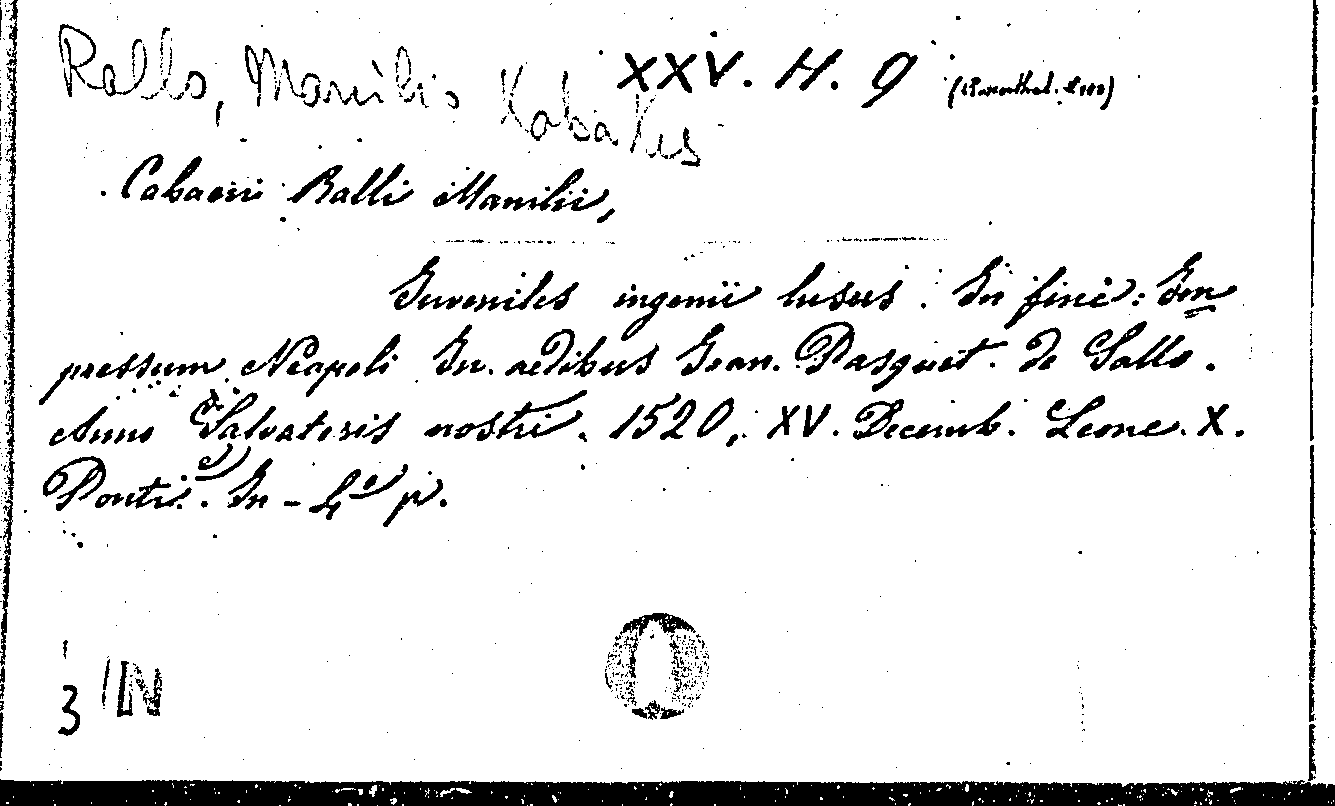 Rallo, Manilio Kabakis
XXV. H. 9
Cabacii Ralli Manilii,
Iuveniles ingenii lusus. In fine: Im
pressum Neapoli In aedibus Ioan. Pasquet. de Sallo.
Anno Salvatoris nostri. 1520, XV. Decemb. Leone. X.
Ponti. In - 4º p.
3 IN